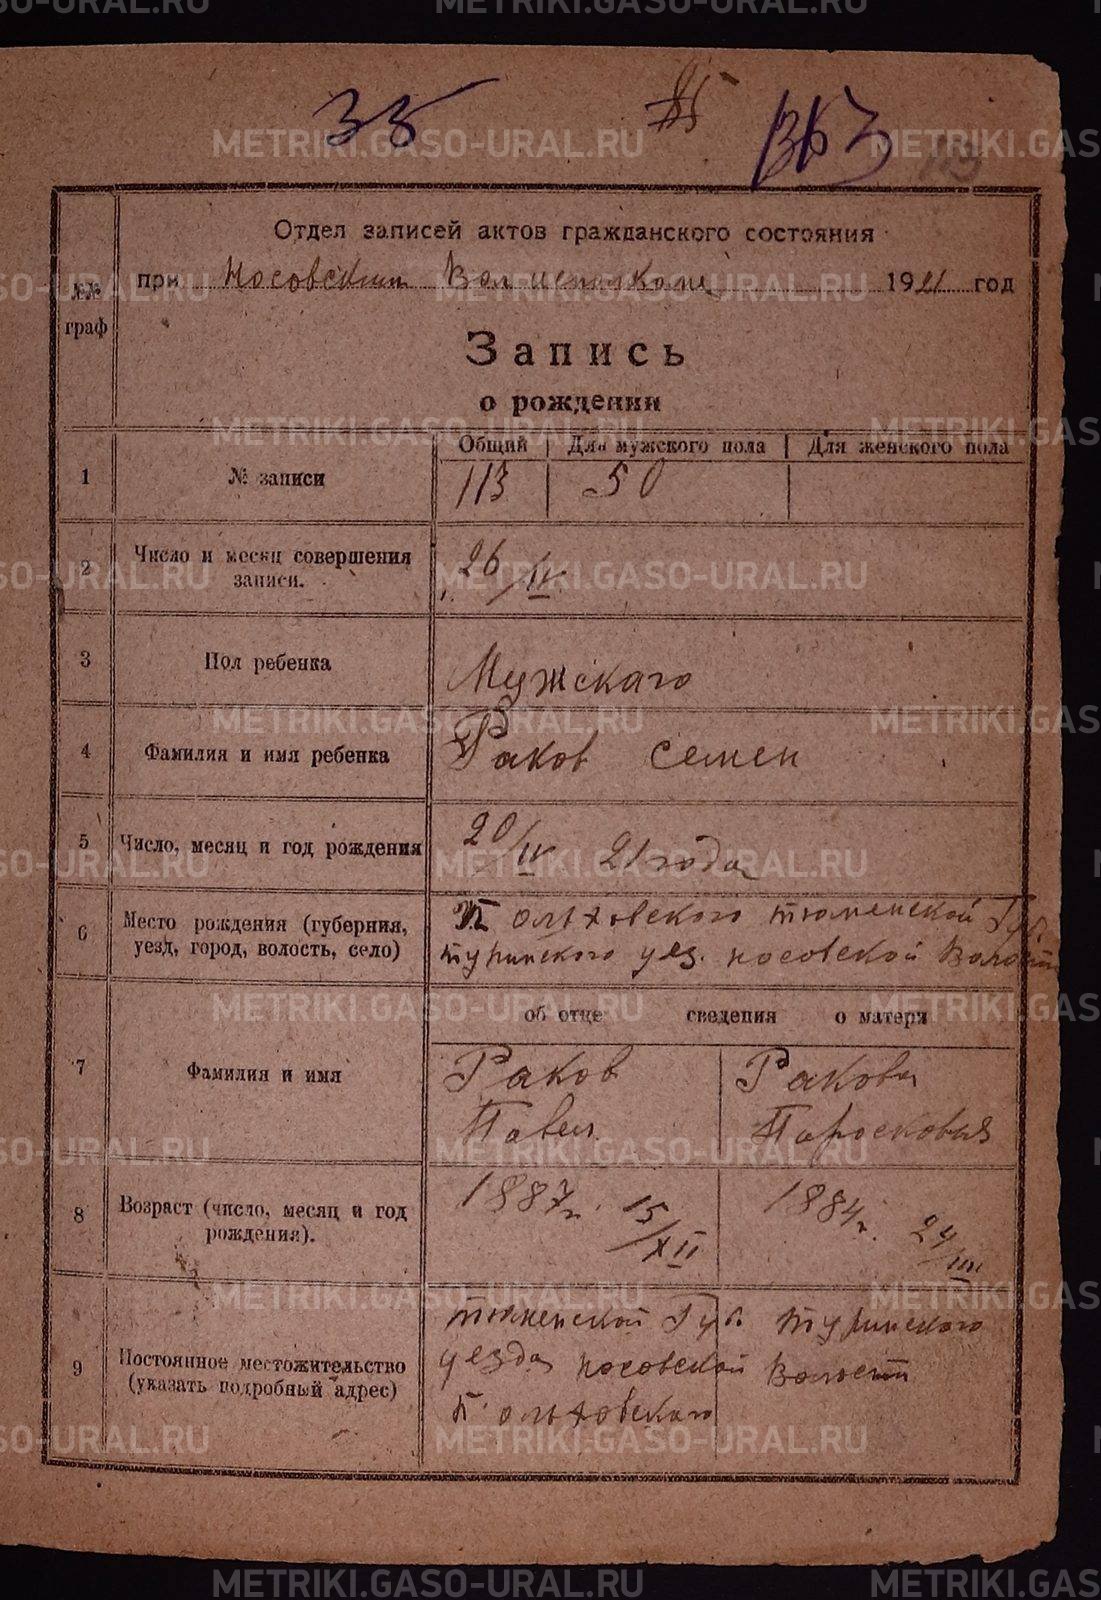 35
85
363
113
Отдел записей актов гражданского состояния
при Носовским Волисполкоме 1921 год
№№ граф
Запись
о рождении
Общий | Для мужского пола | Для женского пола
1 № записи 113 50
2 Число и месяц совершения записи. 26/IV
3 Пол ребенка Мужскаго
4 Фамилия и имя ребенка Раков Семен
5 Число, месяц и год рождения 20/IV 21 года
6 Место рождения (губерния, уезд, город, волость, село) П ольховского тюменской Губ.
туринского уез. носовской Волости
об отце сведения о матери
7 Фамилия и имя Раков Ракова
Павел Паросковья
8 Возраст (число, месяц и год рождения). 1887г. 15/XII 1884г. 24/III
9 Постоянное местожительство (указать подробный адрес) тюменской Губ. туринского
уезда носовской Волости
П. ольховскаго
METRIKI.GASO-URAL.RU